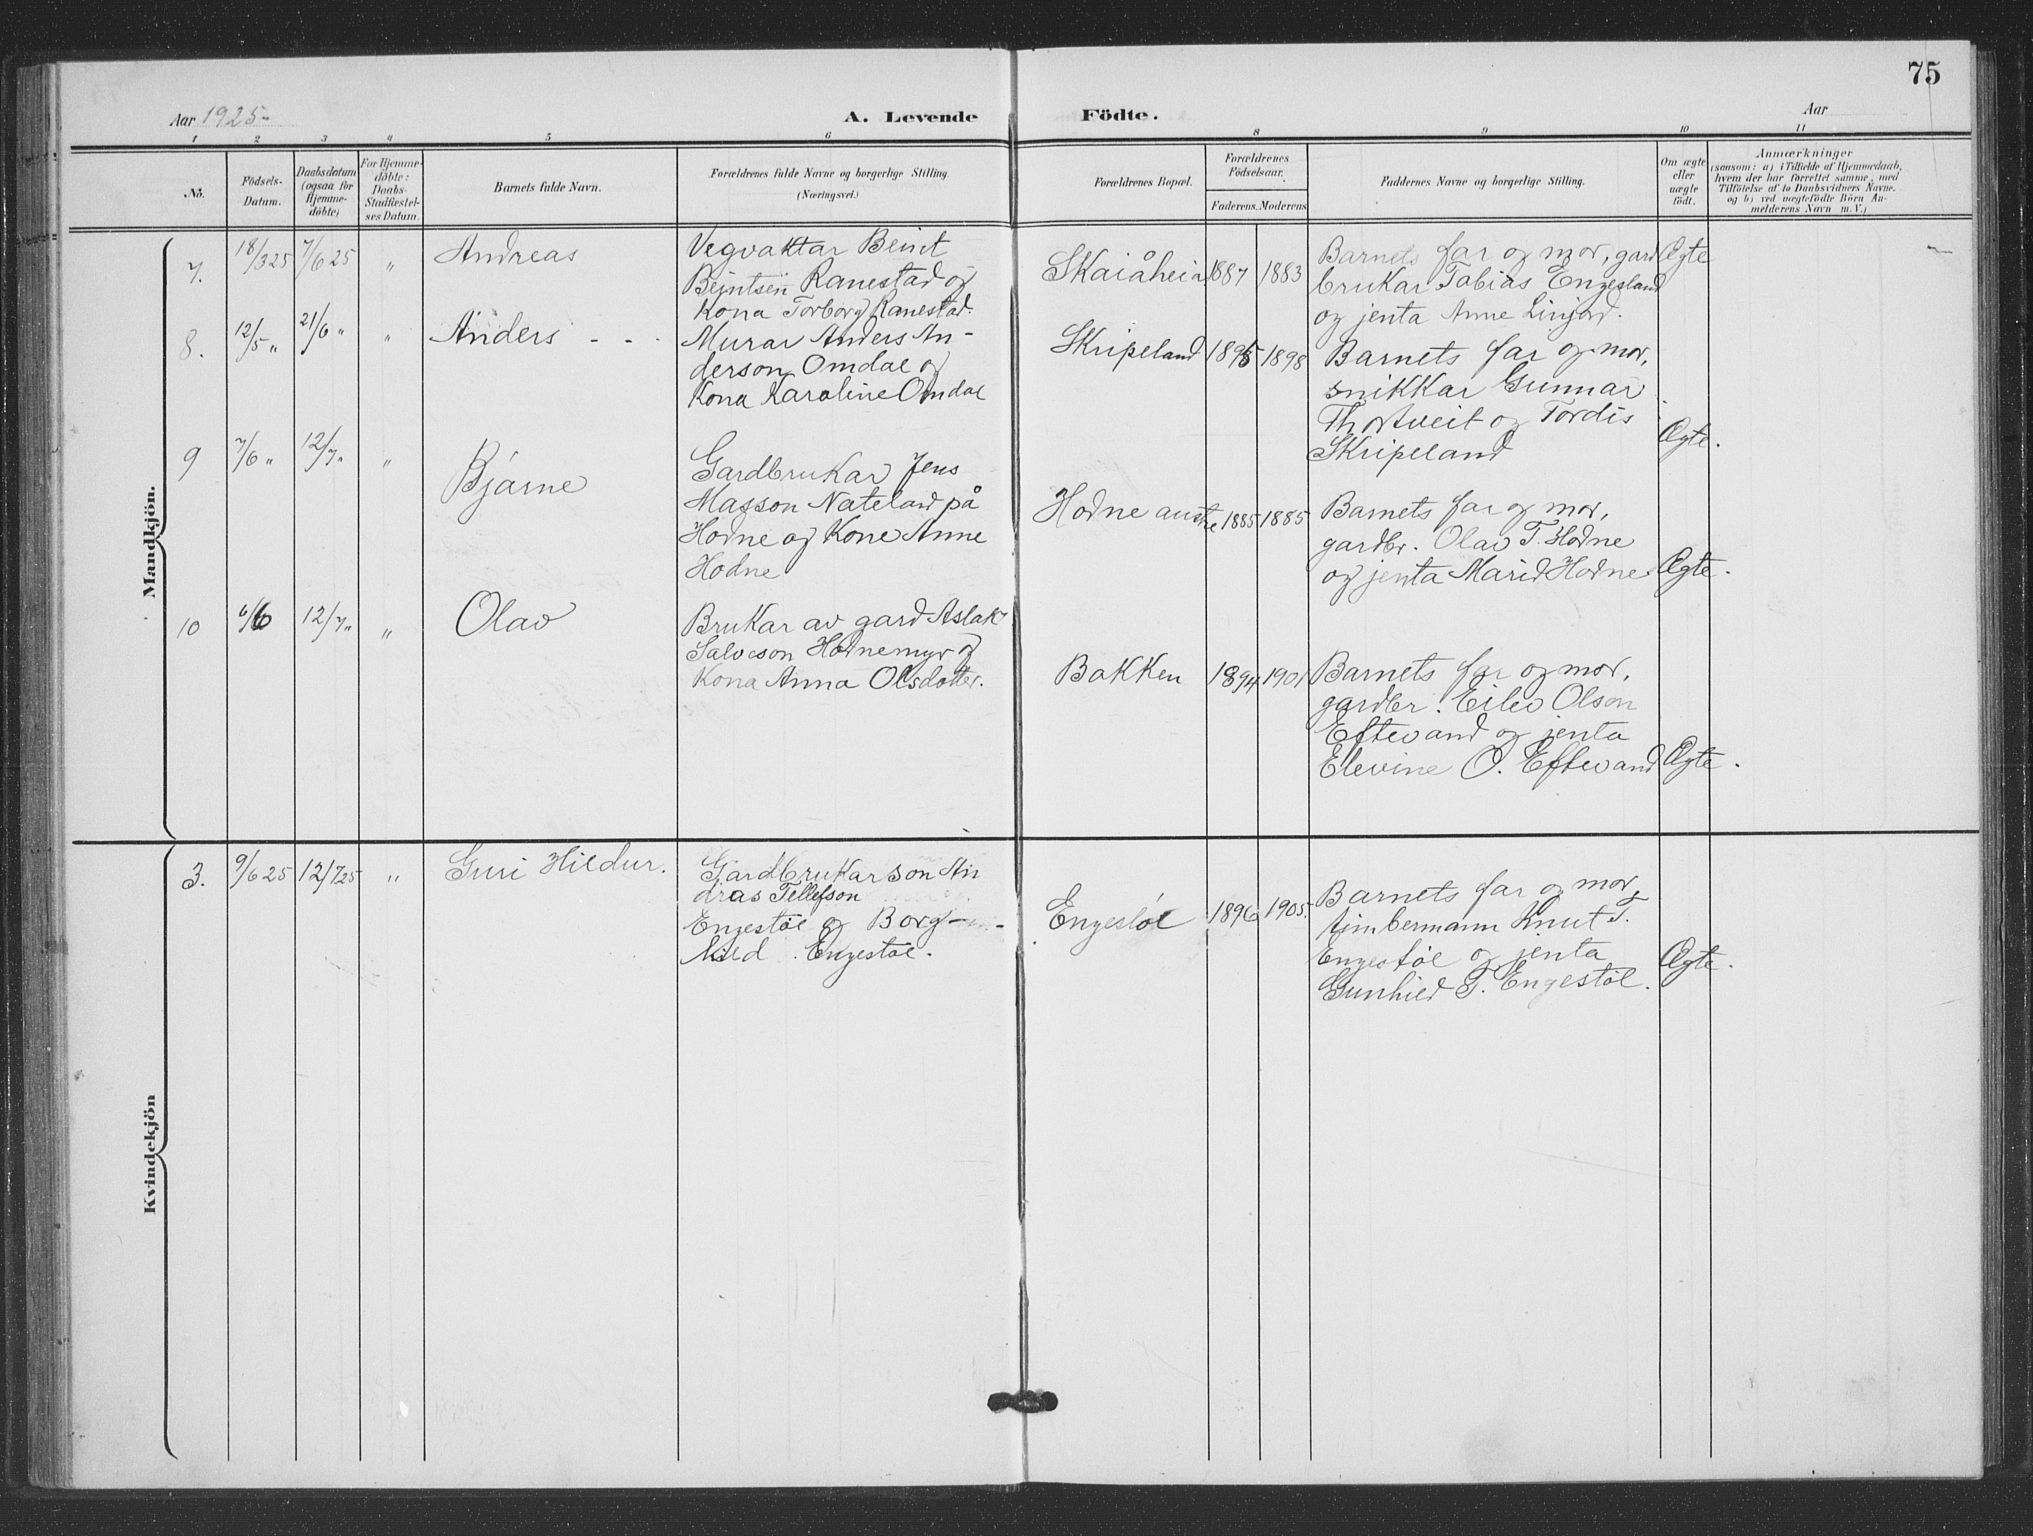 75
Aar 1925-
A. Levende Födte.
Aar
1 2 3 4 5 6 8 9 10 11
No.
Födsels-
Datum.
Daabsdatum
(ogsaa for
Hjemme-
döbte)
For Hjemme-
döbte:
Daabs-
Stadfæstel-
ses Datum.
Barnets fulde Navn.
Forældrenes fulde Navne og borgerlige Stilling.
(Næringsvei.)
Forældrenes Bopæl.
Forældrenes
Födselsaar.
Faderens. Moderens.
Faddernes Navne og borgerlige Stilling.
Om ægte
eller
uægte
födt.
Anmærkninger
(saasom: a) i Tilfælde af Hjemmedaab,
hvem der har forrettet samme, med
Tilföielse af to Daabsvidners Navne.
og b) ved uægtefödte Börn An-
melderens Navn m. V.)
Mandkjön.
7. 18/3 25 7/6 25 " Andreas
Vegvaktar Beint
Bejntsen Ranestad og
Kona Torborg Ranestad.
Skaiåheia 1887 1883
Barnets far og mor, gard
brukar Tobias Engesland
og jenta Anne Linjord.
Ægte
8. 12/5 " 21/6 " " Anders - - -
Murar Anders An-
derson Omdal og
Kona Karoline Omdal
Skripeland 1895 1898
Barnets far og mor,
snikkar Gunnar
Thortveit og Tordis
Skripeland
Ægte.
9 7/6 " 12/7 " " Bjarne
Gardbrukar Jens
Masson Nateland på
Hodne og Kone Anne
Hodne
Hodne austre 1885 1885
Barnets far og mor,
gardbr. Olav T. Hodne
og jenta Marid Hodne
Ægte.
10 6/6 12/7 " " Olav
Brukar av gard Aslak
Salveson Hodnemyr og
Kona Anna Olsdotter.
Bakken 1894 1901
Barnets far og mor,
gardbr. Eilev Olson
Eftevand og jenta
Elevine O. Eftevand
Ægte.
Kvindekjön
3. 9/6 25 12/7 25 " Guri Hildur.
Gardbrukarson An
dras Tellefson
Engestøl og Borg-
hild Engestøl.
Engestøl 1896 1905.
Barnets far og mor,
timbermann Knut T.
Engestøl og jenta
Gunhild T. Engestøl.
Ægte.